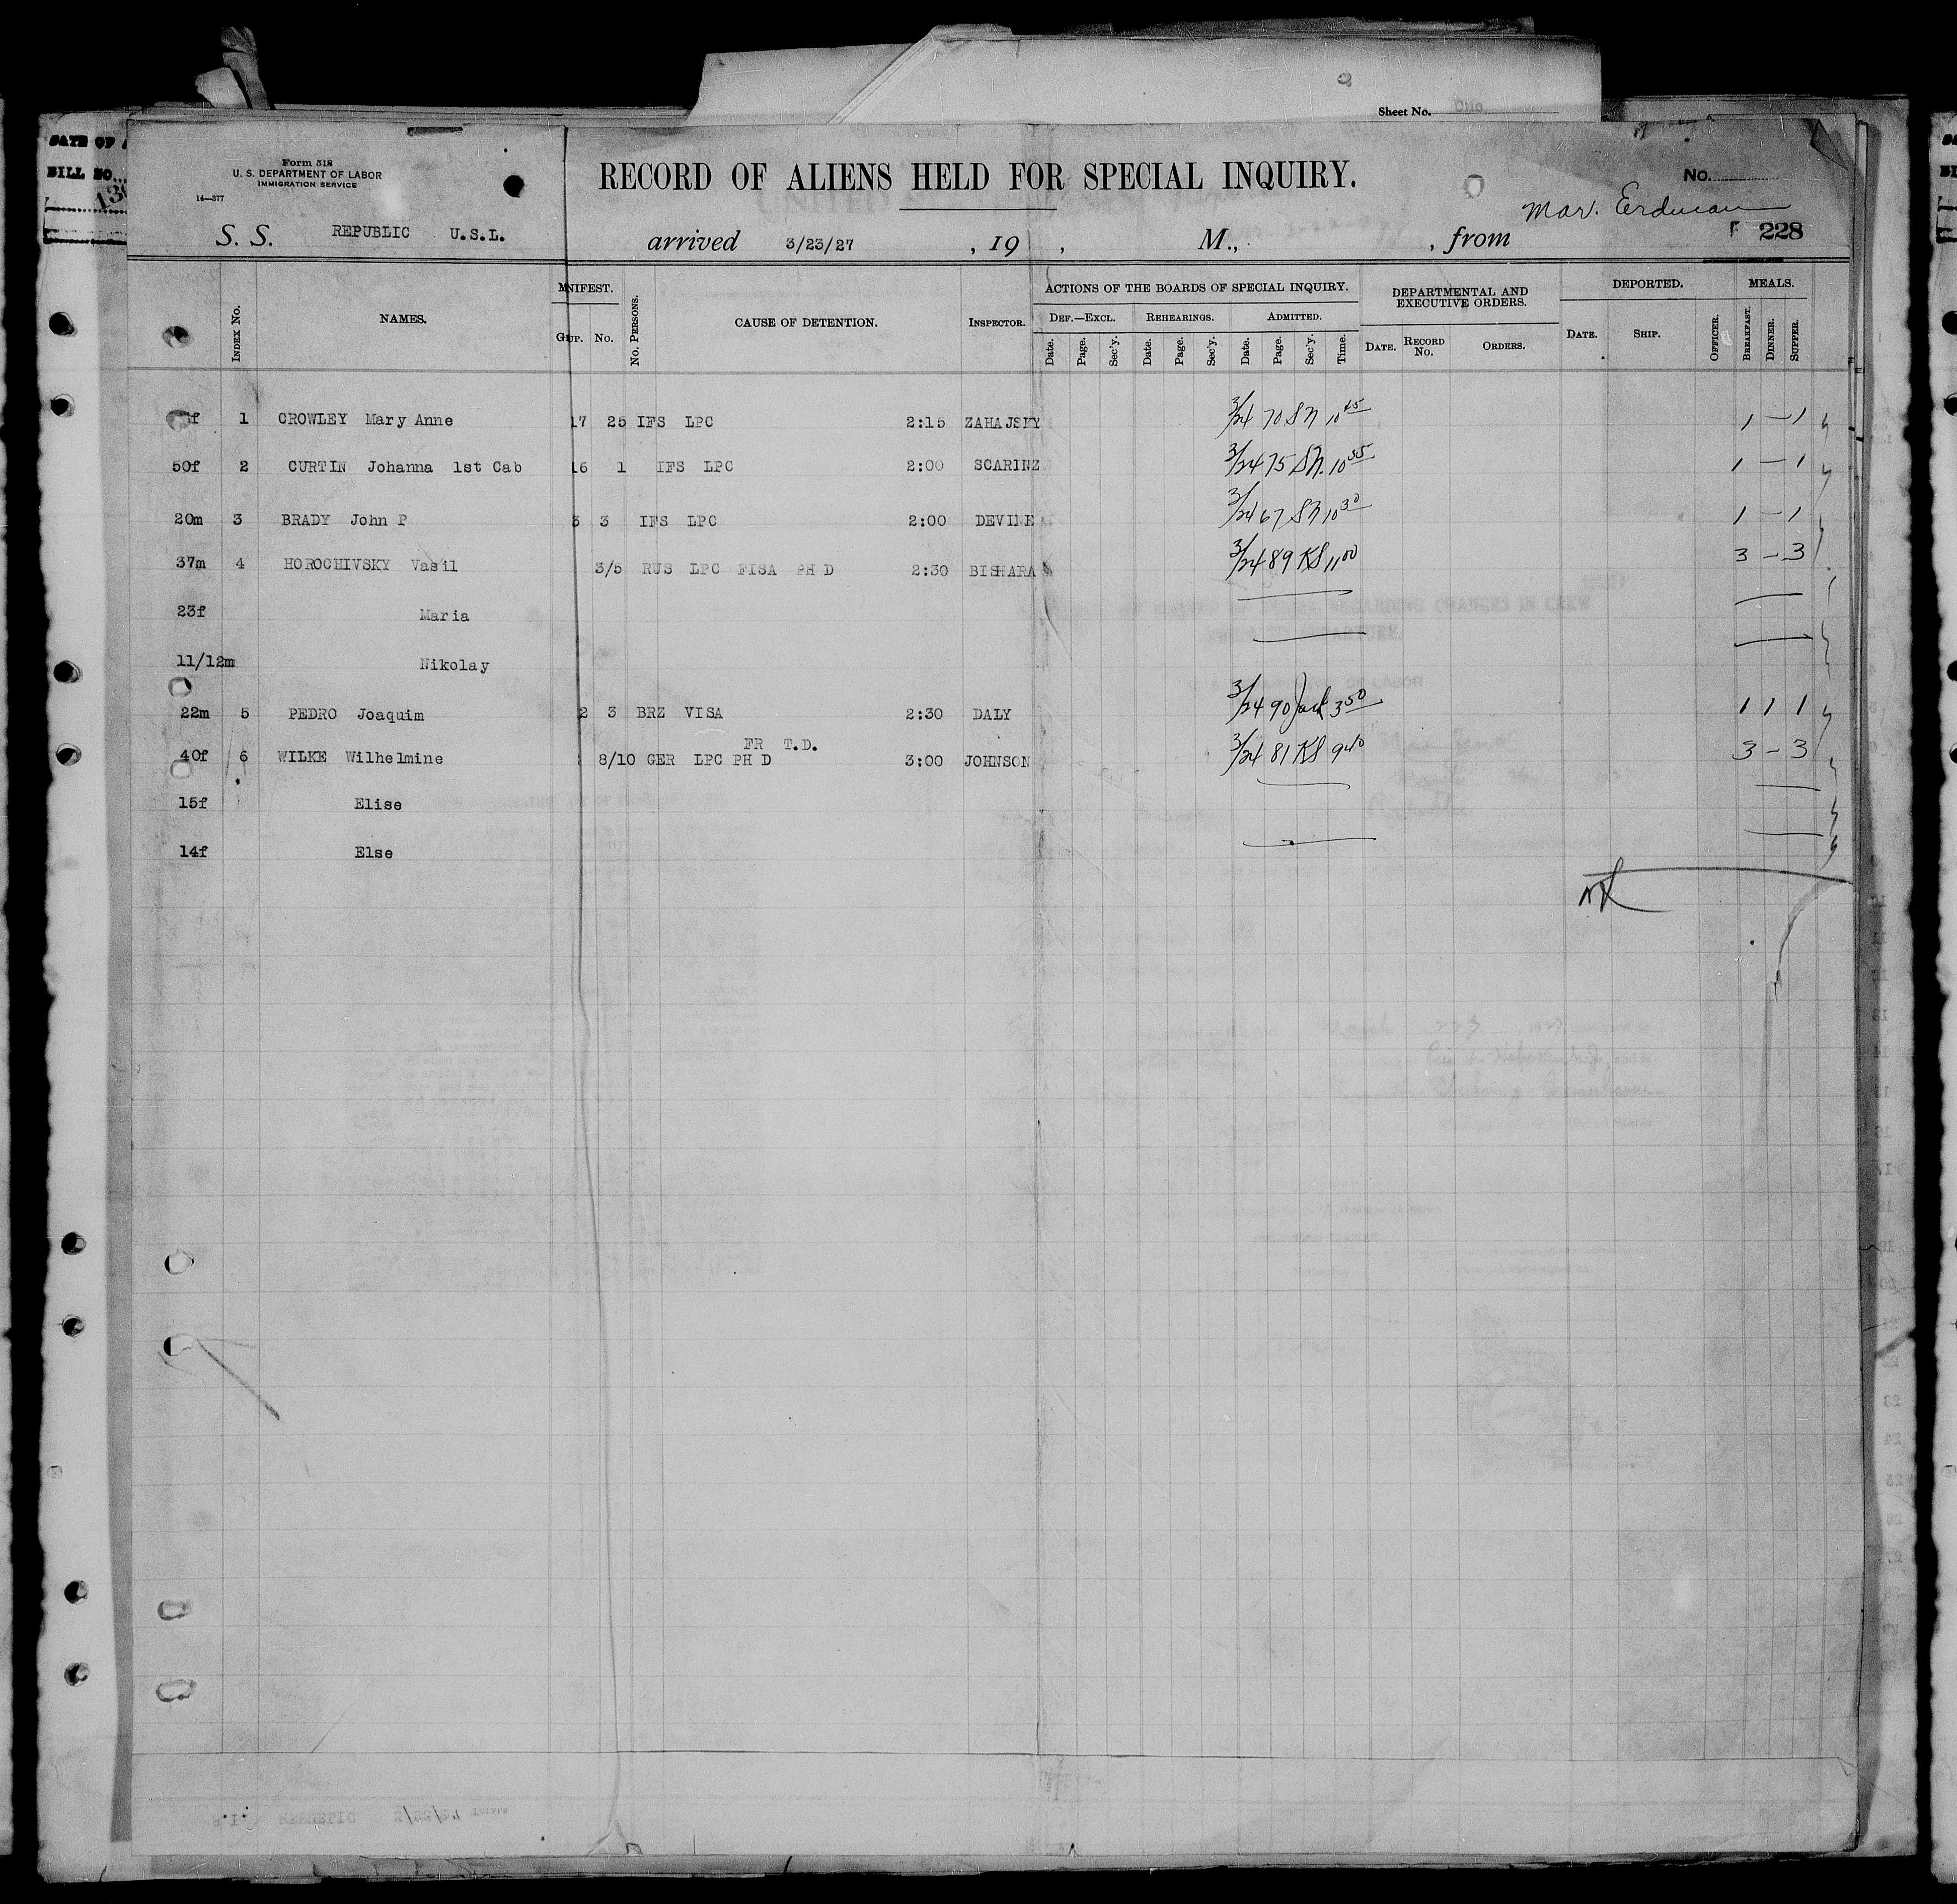 Sheet No. One
DATE OF
BILL NO.
Form 518
U. S. DEPARTMENT OF LABOR
IMMIGRATION SERVICE
14—377
RECORD OF ALIENS HELD FOR SPECIAL INQUIRY.
No.
Mar. Erdman
S. S. REPUBLIC U.S.L. arrived 3/23/27 , 19 , M., , from
228
INDEX No. NAMES. MNIFEST. No. PERSONS. CAUSE OF DETENTION. INSPECTOR. ACTIONS OF THE BOARDS OF SPECIAL INQUIRY. DEPARTMENTAL AND EXECUTIVE ORDERS. DEPORTED. MEALS.
GUP. No. DEF.—EXCL. REHEARINGS. ADMITTED.
Date. Page. Sec'y. Date. Page. Sec'y. Date. Page. Sec'y. Time. DATE. RECORD No. ORDERS. DATE. SHIP. OFFICER. BREAKFAST. DINNER. SUPPER.
f 1 CROWLEY Mary Anne 17 25 IFS LPC 2:15 ZAHAJSKY 3/24 70 SN 10 45 1 — 1
50f 2 CURTIN Johanna 1st Cab 16 1 IFS LPC 2:00 SCARINZ 3/24 75 SN. 10 55 1 — 1
20m 3 BRADY John P 3 3 IFS LPC 2:00 DEVINE 3/24 67 SN 10 30 1 — 1
37m 4 HOROCHIVSKY Vasil 3/5 RUS LPC FISA PH D 2:30 BISHARA 3/24 89 KS 11 00 3 — 3
23f Maria
11/12m Nikolay
22m 5 PEDRO Joaquim 2 3 BRZ VISA 2:30 DALY 3/24 90 Jack 3 50 1 1 1
FR T.D.
40f 6 WILKE Wilhelmine 8/10 GER LPC PH D 3:00 JOHNSON 3/24 81 KS 9 40 3 — 3
15f Elise
14f Else